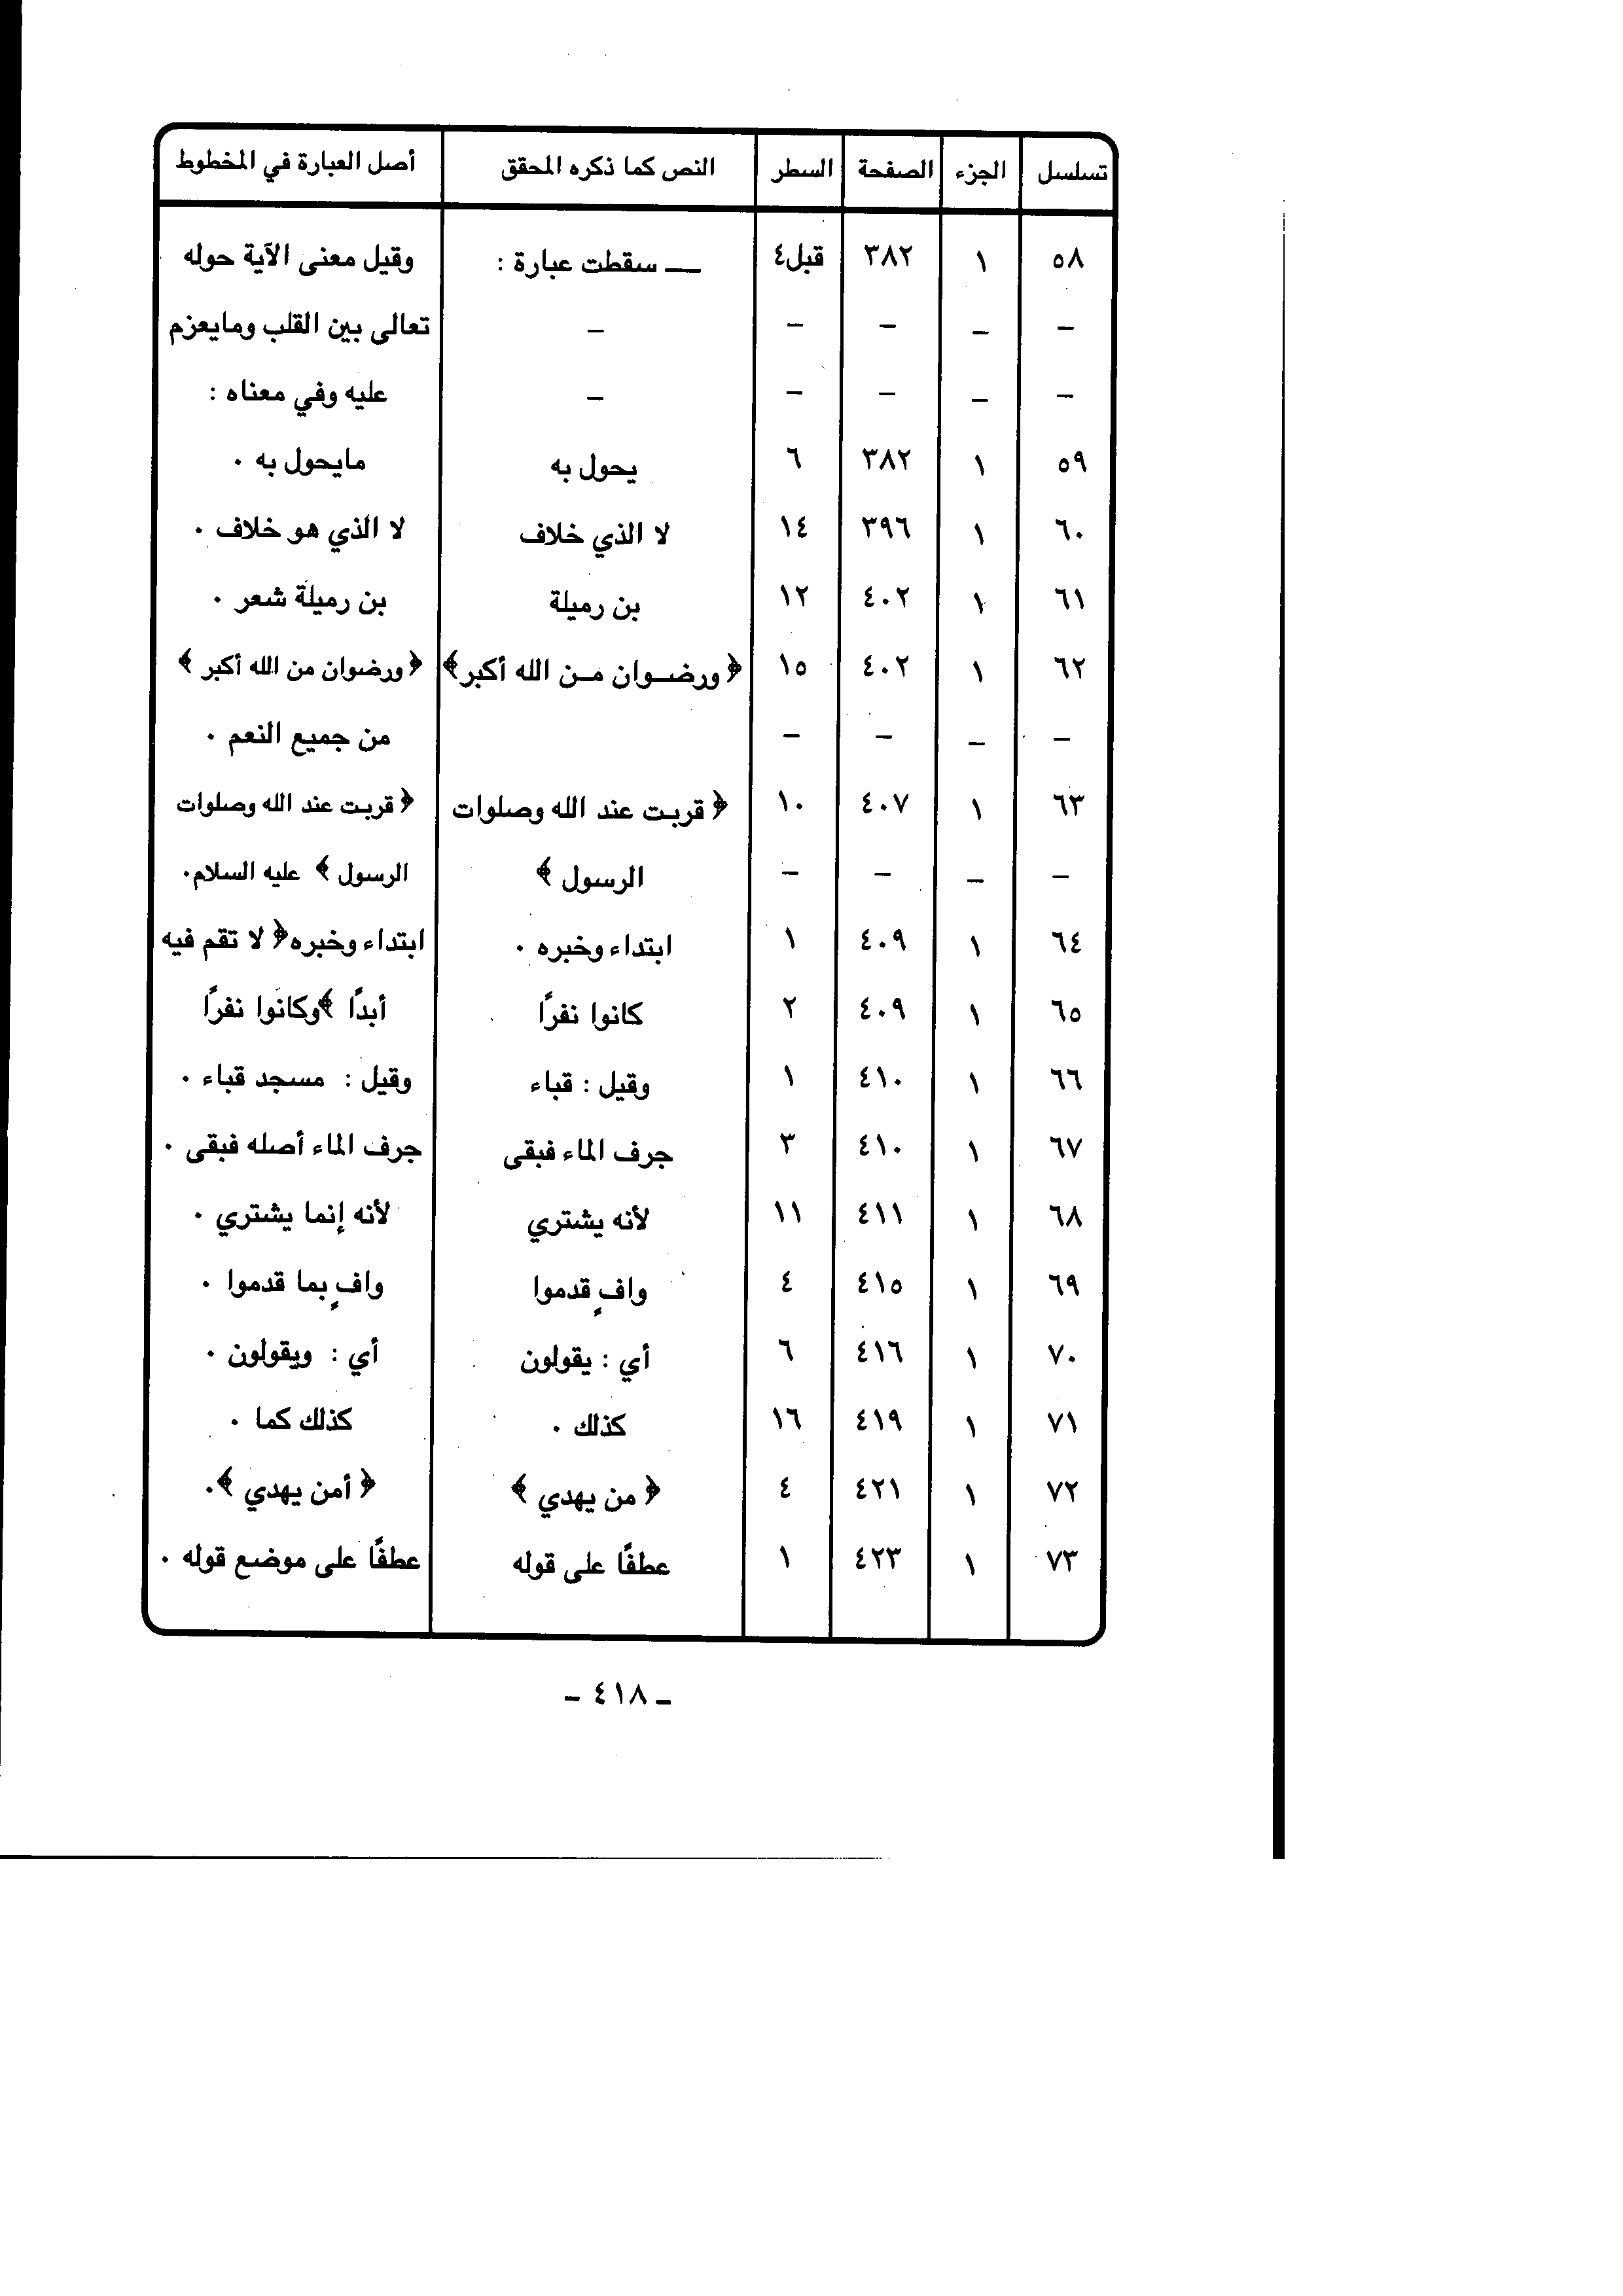 تسلسل الجزء الصفحة السطر النص كما ذكره المحقق أصل العبارة في المخطوط
٥٨ ١ ٣٨٢ قبل٤ — سقطت عبارة : وقيل معنى الآية حوله
– – – – – تعالى بين القلب ومايعزم
– – – – – عليه وفي معناه :
٥٩ ١ ٣٨٢ ٦ يحول به مايحول به ٠
٦٠ ١ ٣٩٦ ١٤ لا الذي خلاف لا الذي هو خلاف ٠
٦١ ١ ٤٠٢ ١٢ بن رميلة بن رميلة شعر ٠
٦٢ ١ ٤٠٢ ١٥ ﴿ورضوان من الله أكبر﴾ ﴿ورضوان من الله أكبر﴾
– – – – من جميع النعم ٠
٦٣ ١ ٤٠٧ ١٠ ﴿قربت عند الله وصلوات ﴿قربت عند الله وصلوات
– – – – الرسول ﴾ الرسول ﴾ عليه السلام٠
٦٤ ١ ٤٠٩ ١ ابتداء وخبره ٠ ابتداء وخبره﴿ لا تقم فيه
٦٥ ١ ٤٠٩ ٢ كانوا نفرًا أبدًا ﴾وكانوا نفرًا
٦٦ ١ ٤١٠ ١ وقيل : قباء وقيل : مسجد قباء ٠
٦٧ ١ ٤١٠ ٣ جرف الماء فبقى جرف الماء أصله فبقى ٠
٦٨ ١ ٤١١ ١١ لأنه يشتري لأنه إنما يشتري ٠
٦٩ ١ ٤١٥ ٤ وافٍ قدموا وافٍ بما قدموا ٠
٧٠ ١ ٤١٦ ٦ أي : يقولون أي : ويقولون ٠
٧١ ١ ٤١٩ ١٦ كذلك ٠ كذلك كما ٠
٧٢ ١ ٤٢١ ٤ ﴿ من يهدي ﴾ ﴿ أمن يهدي ﴾٠
٧٣ ١ ٤٢٣ ١ عطفًا على قوله عطفًا على موضع قوله ٠
– ٤١٨ –